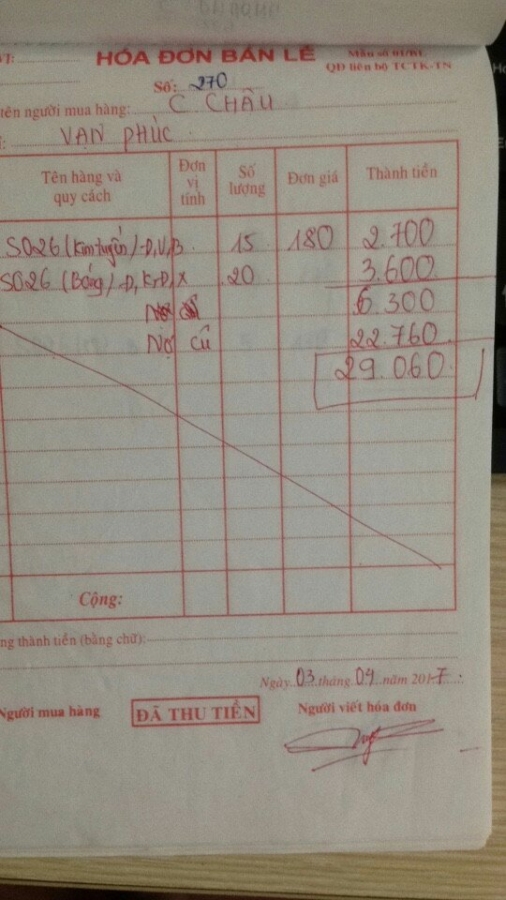 HÓA ĐƠN BÁN LẺ
QĐ liên bộ TCTK-TN
Số: 270
tên người mua hàng: C CHÂU
VẠN PHÚC
Tên hàng và quy cách Đơn vị tính Số lượng Đơn giá Thành tiền
SO26 (Kim tuyến) - Đ,V,B 15 180 2.700
SO26 (Bóng) - Đ, KrĐ, X 20 3.600
6.300
Nợ cũ 22.760
29.060
Cộng:
ng thành tiền (bằng chữ):
Ngày 03 tháng 09 năm 2017
Người mua hàng ĐÃ THU TIỀN Người viết hóa đơn